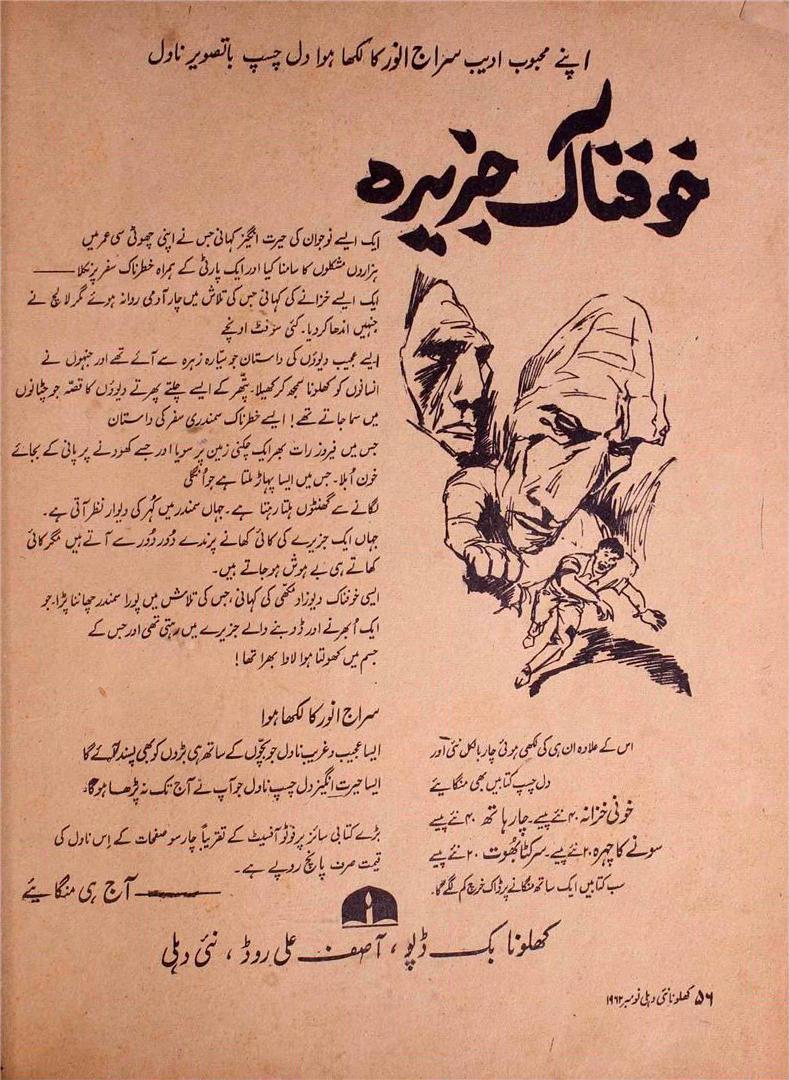 اپنے محبوب ادیب سراج انور کا لکھا ہوا دل چسپ باتصویر ناول
خوفناک جزیرہ
ایک ایسے نوجوان کی حیرت انگیز کہانی جس نے اپنی چھوٹی سی عمر میں
ہزاروں مشکلوں کا سامنا کیا اور ایک پارٹی کے ہمراہ خطرناک سفر پر نکلا ——
ایک ایسے خزانے کی کہانی جس کی تلاش میں چار آدمی روانہ ہوئے مگر لالچ نے
جنہیں اندھا کر دیا۔ کئی سو فٹ اونچے
ایسے عجیب دیوؤں کی داستان جو سیارہ زہرہ سے آئے تھے اور جنہوں نے
انسانوں کو کھلونا سمجھ کر کھیلا۔ پتھر کے ایسے چلتے پھرتے دیوؤں کا قصہ جو چٹانوں
میں سما جاتے تھے! ایسے خطرناک سمندری سفر کی داستان
جس میں فیروز رات بھر ایک چکنی زمین پر سویا اور جسے کھودنے پر پانی کے بجائے
خون اُبلا۔ جس میں ایسا پہاڑ ملتا ہے جو اُنگلی
لگانے سے گھنٹوں ہلتا رہتا ہے۔ جہاں سمندر میں کُہر کی دیوار نظر آتی ہے۔
جہاں ایک جزیرے کی کائی کھانے پرندے دُور دُور سے آتے ہیں مگر کائی
کھاتے ہی بے ہوش ہو جاتے ہیں۔
ایسی خوفناک دیوزاد مکھی کی کہانی، جس کی تلاش میں پورا سمندر چھاننا پڑا۔ جو
ایک اُبھرنے اور ڈوبنے والے جزیرے میں رہتی تھی اور جس کے
جسم میں کھولتا ہوا لاوا بھرا تھا!
سراج انور کا لکھا ہوا
ایسا عجیب و غریب ناول جو بچوں کے ساتھ ہی بڑوں کو بھی پسند آئے گا
ایسا حیرت انگیز دل چسپ ناول جو آپ نے آج تک نہ پڑھا ہوگا۔
بڑے کتابی سائز پر فوٹو آفسیٹ کے تقریباً چار سو صفحات کے اِس ناول کی
قیمت صرف پانچ روپے ہے۔
—— آج ہی منگایئے
اس کے علاوہ ان ہی کی لکھی ہوئی چار بالکل نئی اور
دل چسپ کتابیں بھی منگایئے
خونی خزانہ ۴۰ نئے پیسے۔ چار ہاتھ ۴۰ نئے پیسے
سونے کا چہرہ ۲۰ نئے پیسے۔ سرکٹا بھوت ۲۰ نئے پیسے
سب کتابیں ایک ساتھ منگانے پر ڈاک خرچ کم لگے گا۔
کھلونا بک ڈپو، آصف علی روڈ، نئی دہلی
۵۶ کھلونا نئی دہلی نومبر ۱۹۶۲